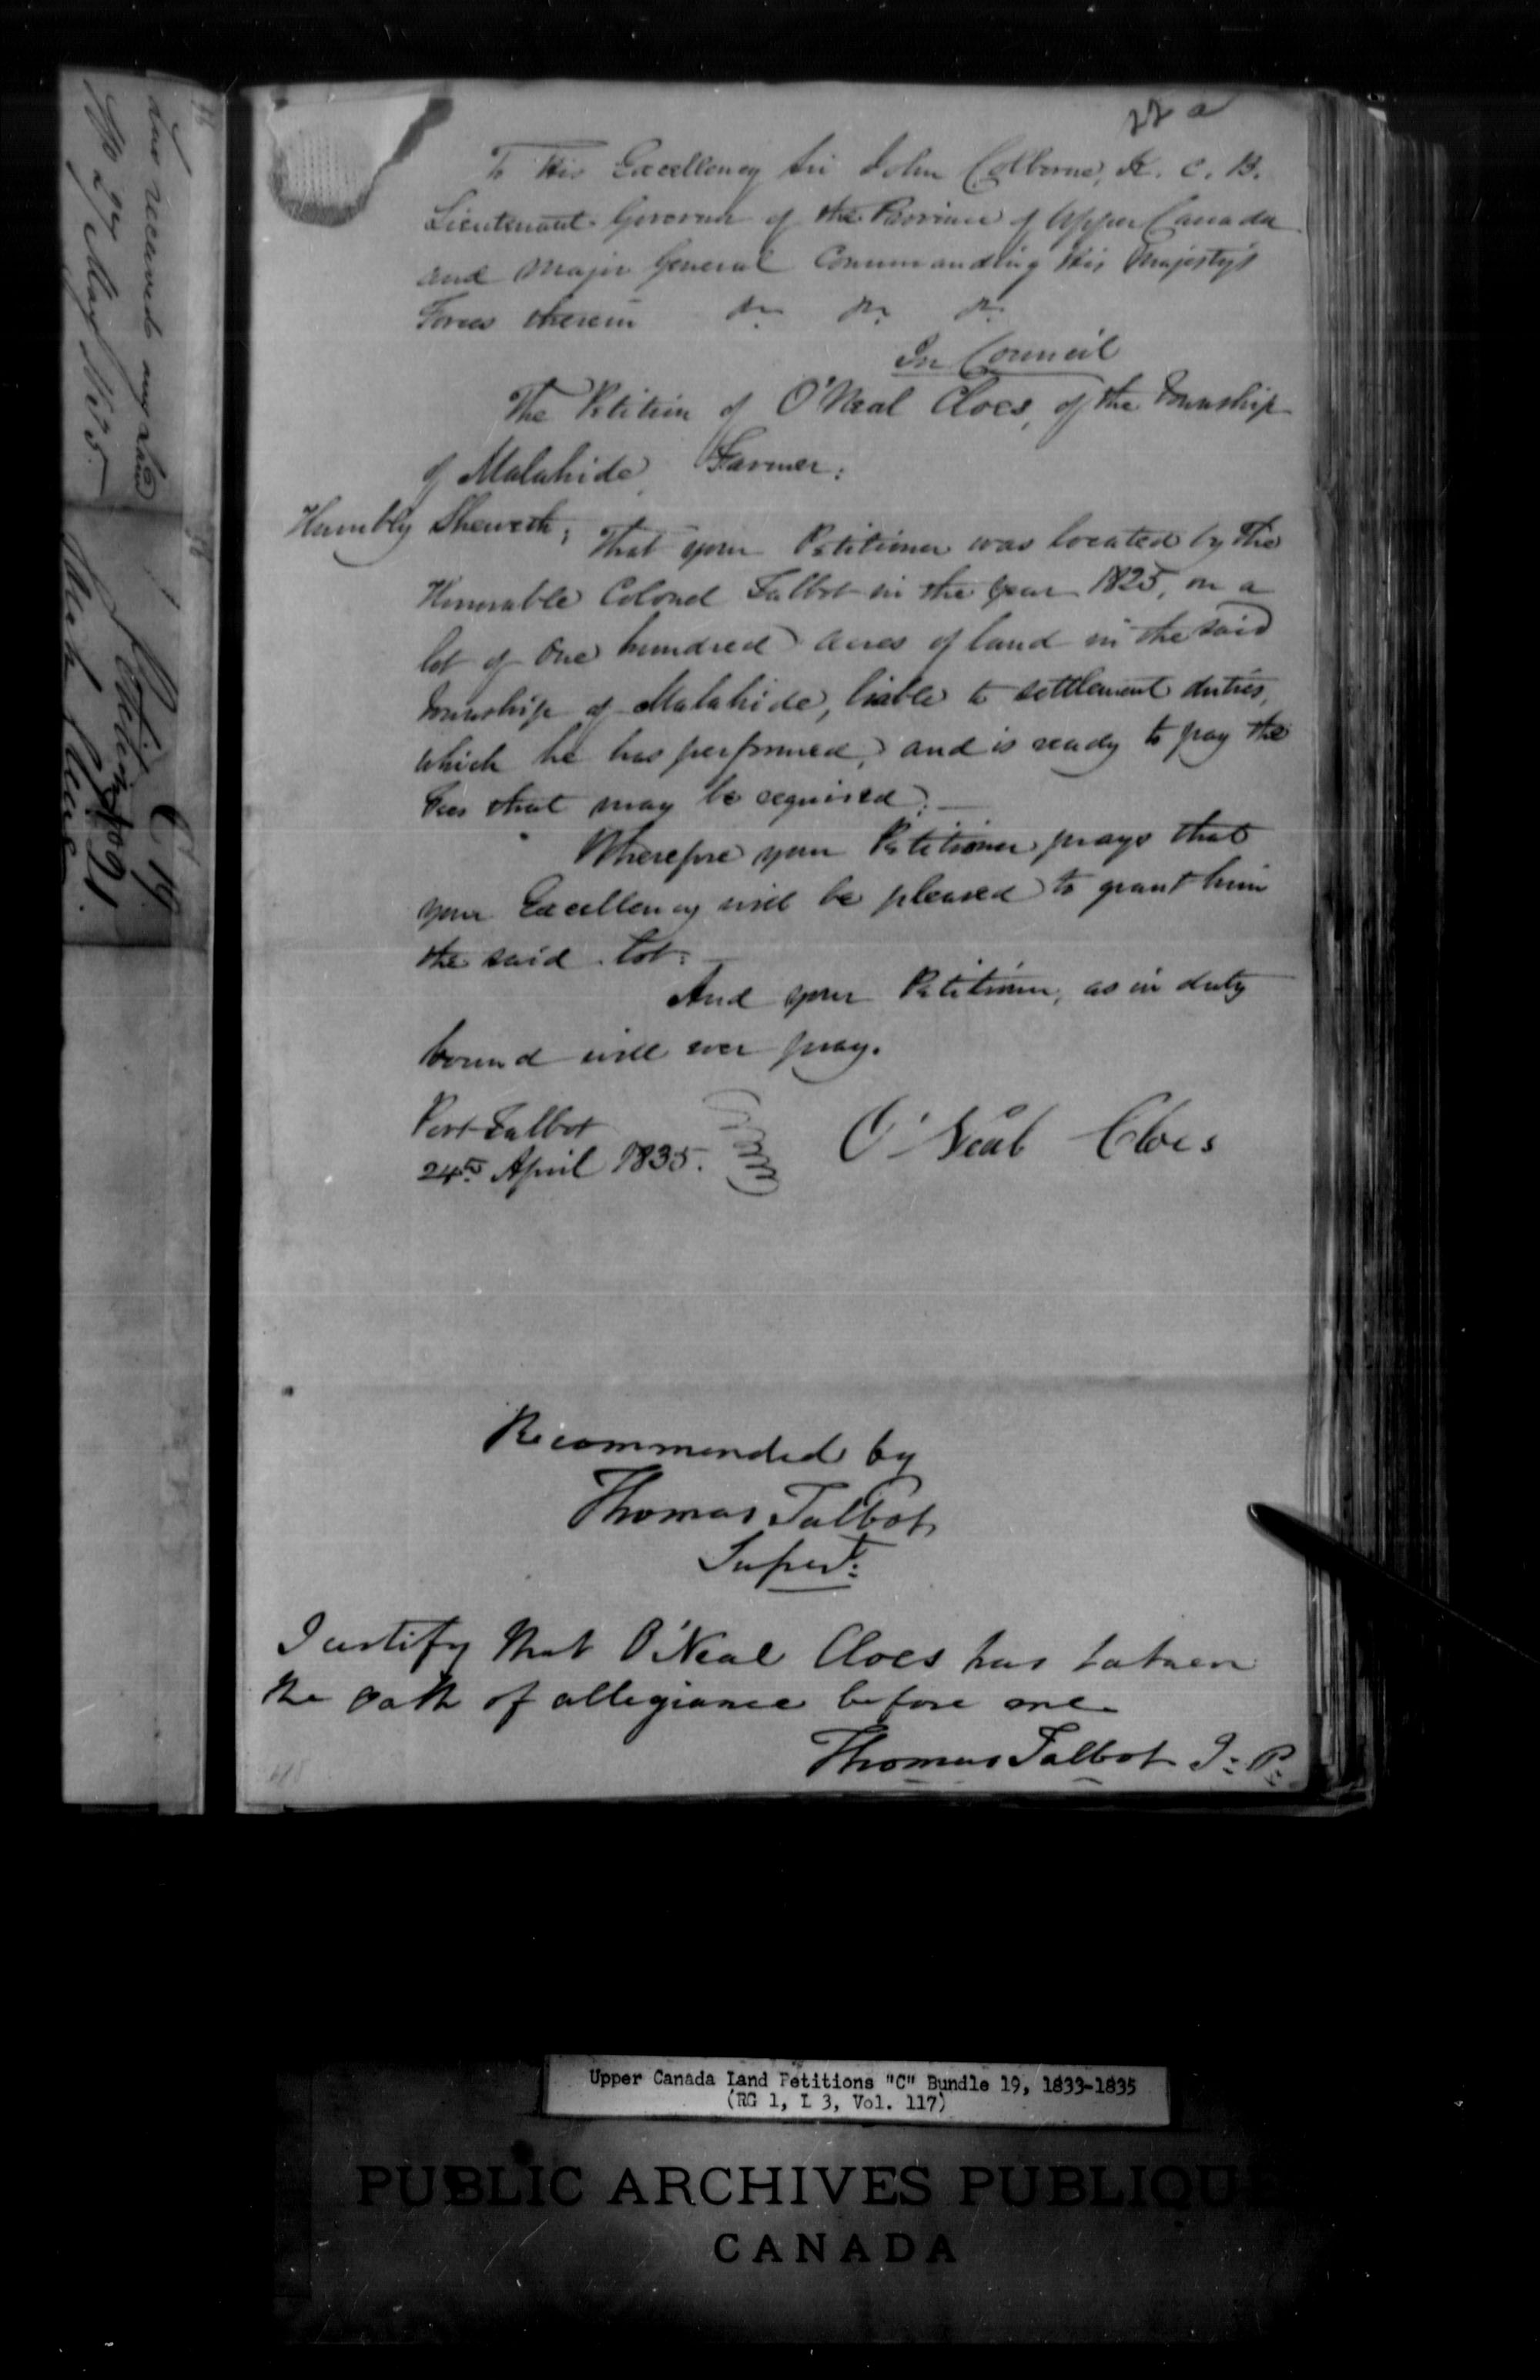 22 a
To His Excellency Sir John Colborne, K. C. B.
Lieutenant Governor of the Province of Upper Canada
and Major General Commanding His Majesty's
Forces therein &c. &c. &c.
In Council
The Petition of O'Neal Cloes, of the Township
of Malahide Farmer:
Humbly Sheweth;
That your Petitioner was located by the
Honorable Colonel Talbot in the year 1825, on a
lot of One hundred acres of land in the said
Township of Malahide, liable to settlement duties,
which he has performed, and is ready to pay the
Fees that may be required.
Wherefore your Petitioner prays that
your Excellency will be pleased to grant him
the said lot.
And your Petitioner, as in duty
bound will ever pray.
Port Talbot
24th April 1835.
O'Neal Cloes
Recommended by
Thomas Talbot
Supert:
I certify that O'Neal Cloes has taken
the oath of allegiance before me
Thomas Talbot J: P:
received my
May 1835
Petition
C 19
Upper Canada Land Petitions "C" Bundle 19, 1833-1835
(RG 1, L 3, Vol. 117)
PUBLIC ARCHIVES PUBLIQUE
CANADA